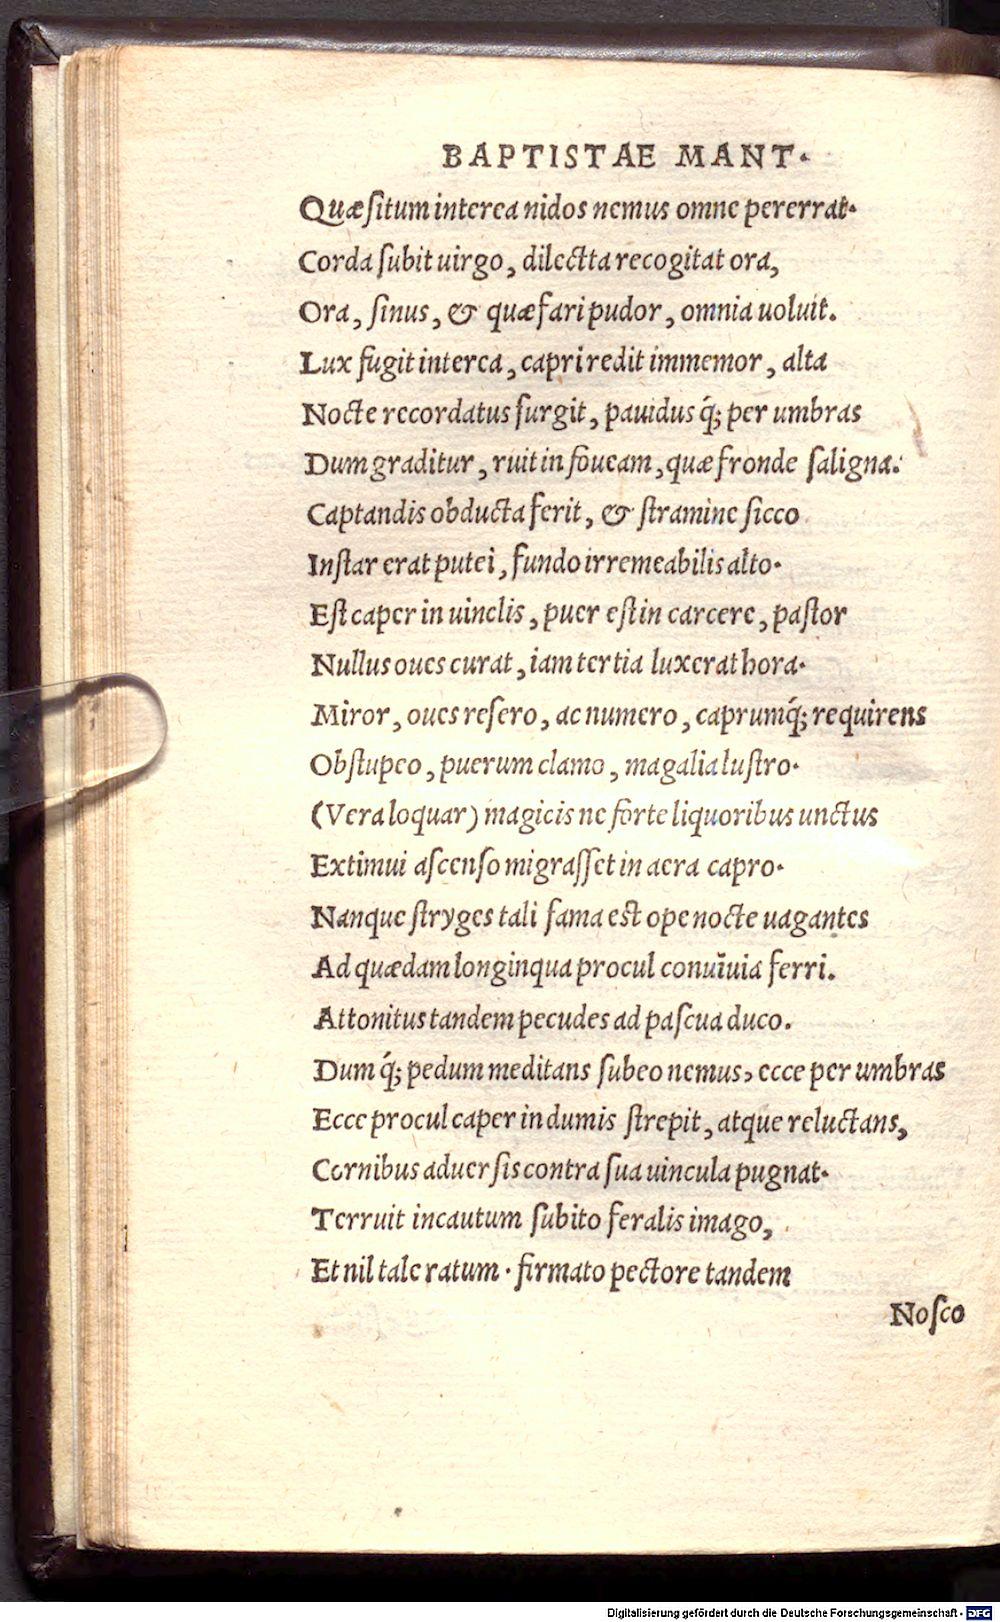 BAPTISTAE MANT.
Quæsitum interea nidos nemus omne pererrat.
Corda subit uirgo, dilectta recogitat ora,
Ora, sinus, & quæ fari pudor, omnia uoluit.
Lux fugit interea, capri redit immemor, alta
Nocte recordatus surgit, pauidus q́; per umbras
Dum graditur, ruit in foueam, quæ fronde saligna.
Captandis obducta ferit, & stramine sicco
Instar erat putei, fundo irremeabilis alto.
Est caper in uinclis, puer est in carcere, pastor
Nullus oues curat, iam tertia luxerat hora.
Miror, oues resero, ac numero, caprumq́; requirens
Obstupeo, puerum clamo, magalia lustro.
(Vera loquar) magicis ne forte liquoribus unctus
Extimui ascenso migrasset in aera capro.
Nanque stryges tali fama est ope nocte uagantes
Ad quædam longinqua procul conuĩuia ferri.
Attonitus tandem pecudes ad pascua duco.
Dum q́; pedum meditans subeo nemus, ecce per umbras
Ecce procul caper in dumis strepit, atque reluctans,
Cornibus aduersis contra sua uincula pugnat.
Terruit incautum subito feralis imago,
Et nil tale ratum. firmato pectore tandem
Nosco
Digitalisierung gefördert durch die Deutsche Forschungsgemeinschaft - DFG